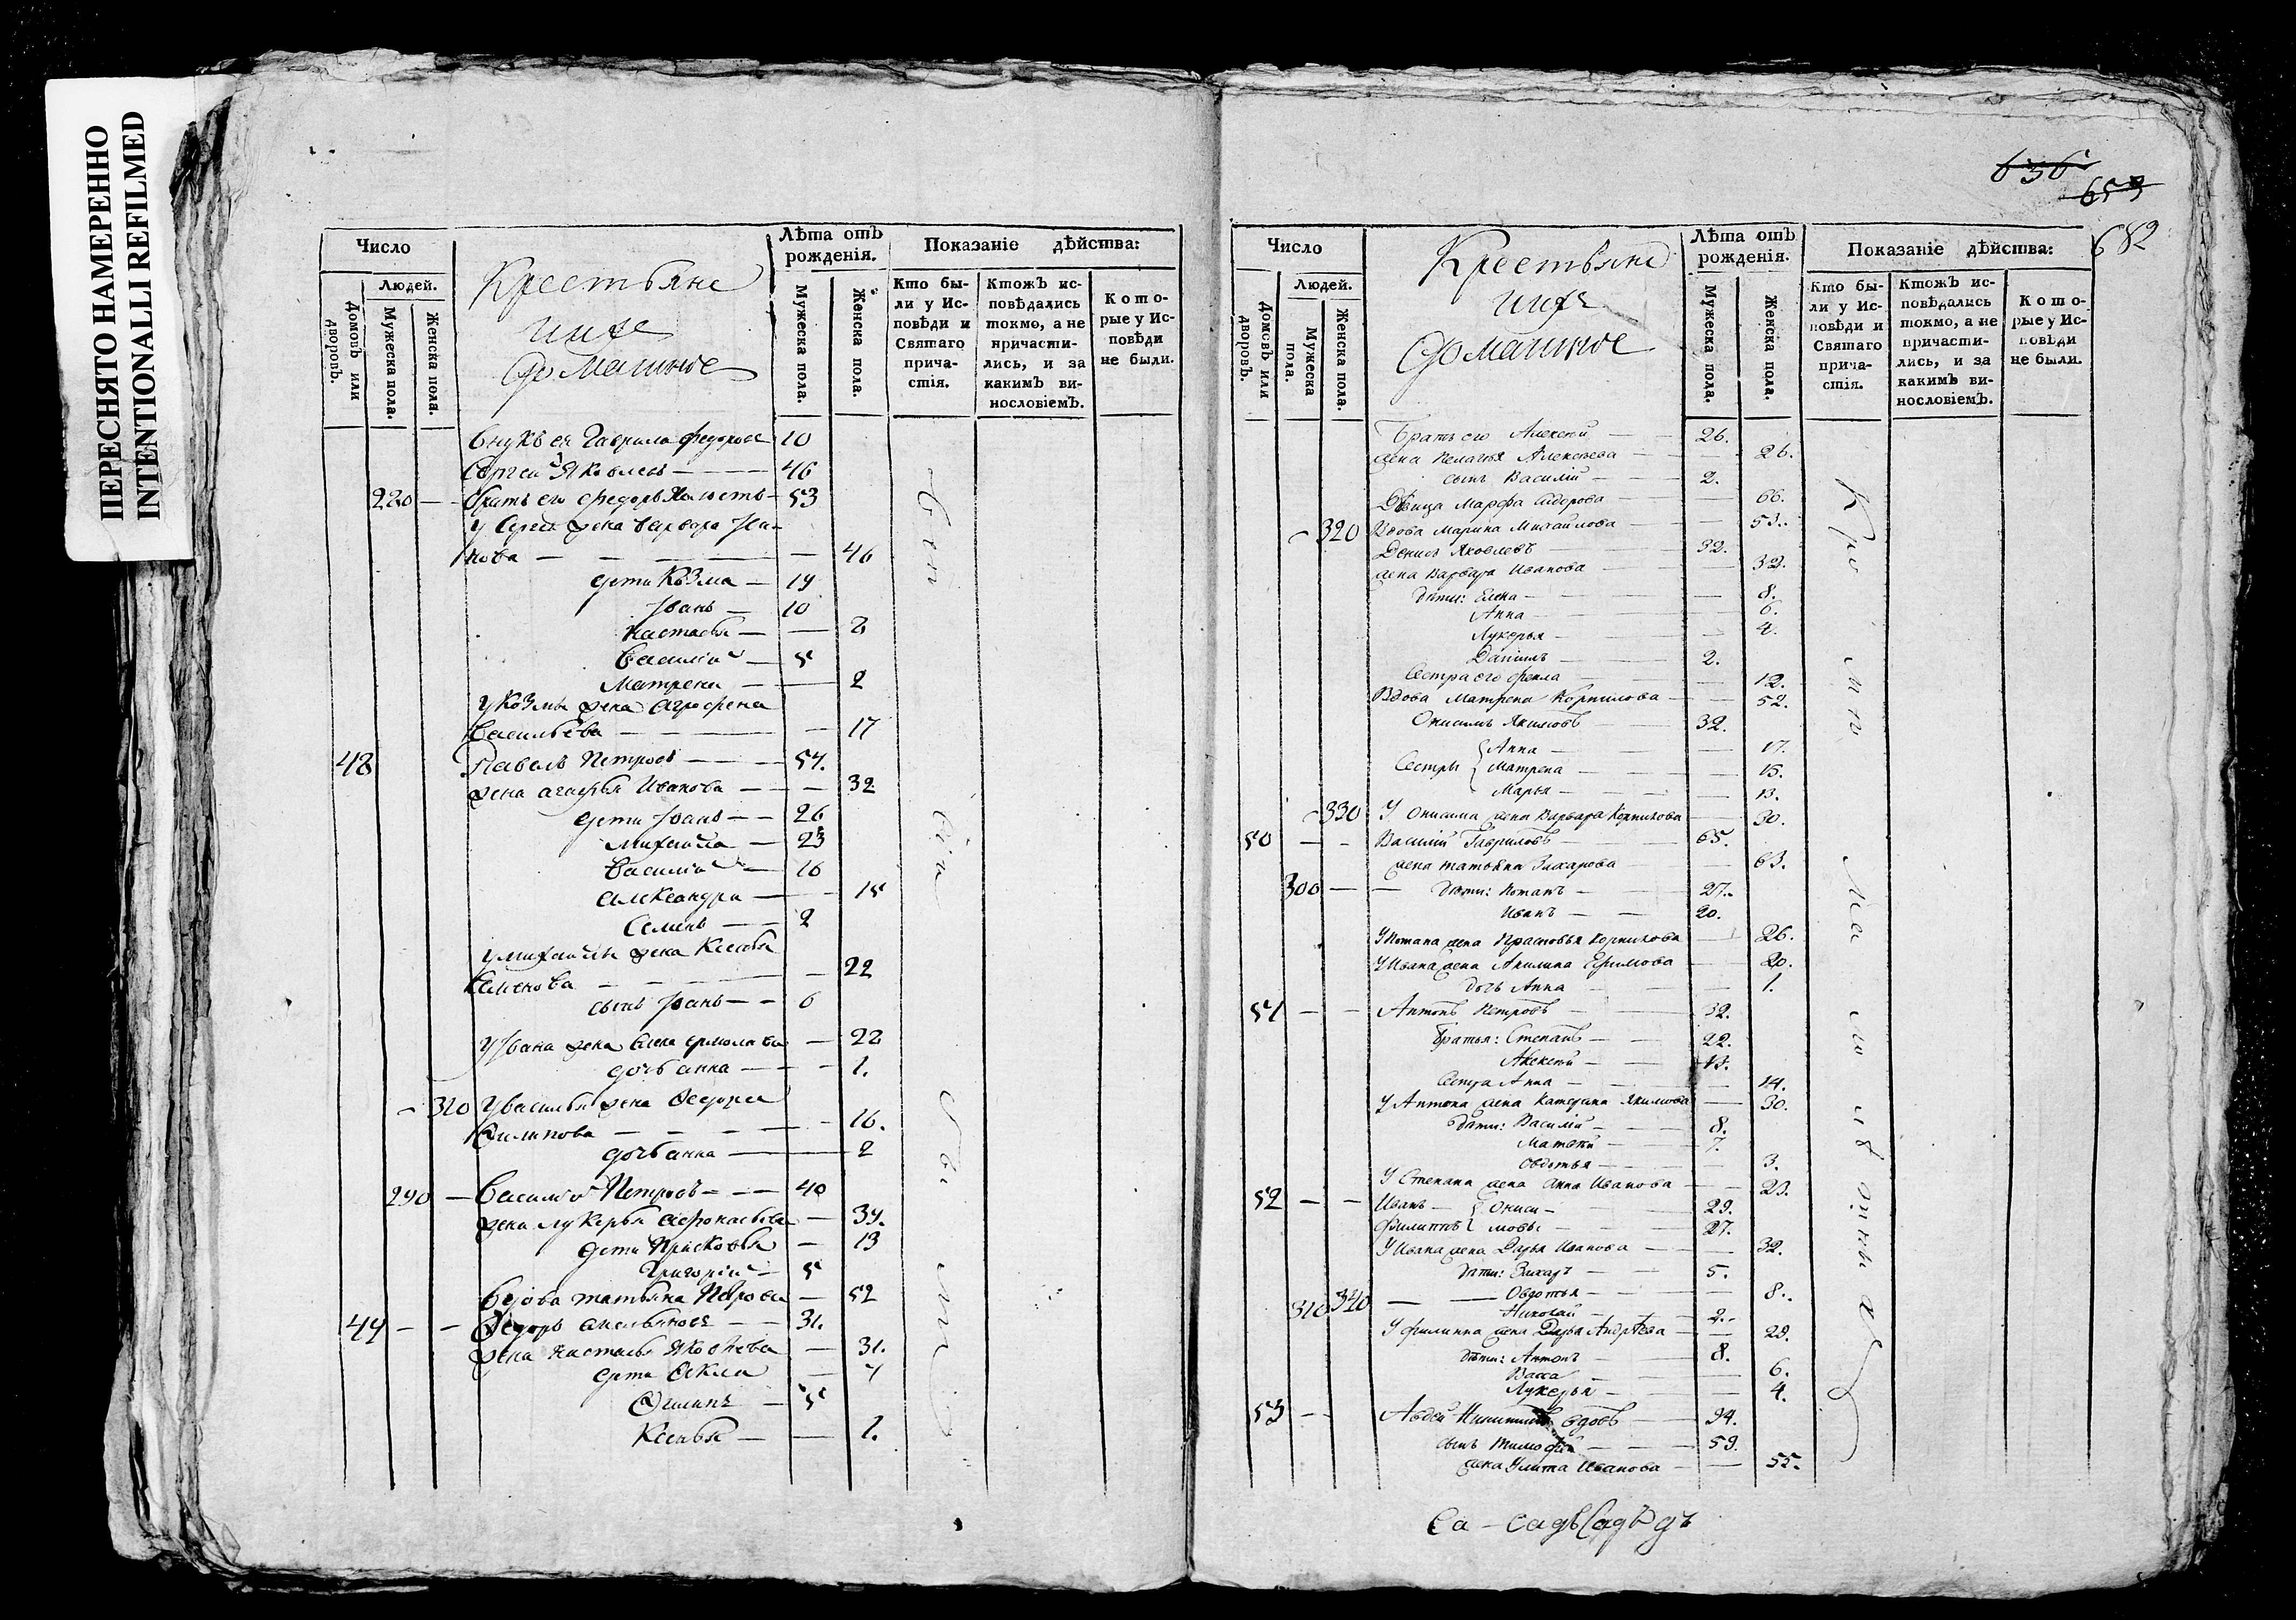 ПЕРЕСНЯТО НАМЕРЕННО
INTENTIONALLI REFILMED
Число
Людей.
Домовъ или дворовъ.
Мужеска пола.
Женска пола.
Крестьяне
ихъ
Домашные
Лѣта отъ рожденія.
Мужеска пола.
Женска пола.
Показаніе дѣйства:
Кто были у Исповѣди и Святаго причастія.
Ктожъ исповѣдались токмо, а не причастились, и за какимъ винословіемъ.
Которые у Исповѣди не были.
Внукъ ея Гаврила Федоров 10
Сергей Яковлевъ — 46
Братъ его Федоръ Холостъ — 53
У Сергея жена Варвара Ива-
нова — 46
дети Козма — 19
Иванъ — 10
Настасья — 8
Василіи — 5
Матрена — 2
У Козмы жена Агрофена
Васильева — 17
48 Павелъ Петровъ — 54.
жена Агафья Иванова — 32
дети Иванъ — 26
Михаила — 23
Василіи — 16
Александра — 15
Семенъ — 2
У Михаилы жена Ксенья
Семенова — 22
сынъ Иванъ — 6
У Ивана жена Ермолаева — 22
дочь Анна — 1.
310 У Василья жена Федора
Филипова — 16.
дочь Анна — 2
290 — Василіи Петровъ — 40
жена Лукерья Афонасьева — 34.
дети Прасковья — 13
Григоріи — 5
Вдова Татьяна Петрова — 52
49 — Федоръ Емельяновъ — 31.
жена Настасья Яковлева — 31.
дети Фекла — 7
Филипъ — 5
Ксенья — 1.
636
653
682
Число
Людей.
Домовъ или дворовъ.
Мужеска пола.
Женска пола.
Крестьяне
ихъ
Домашные
Лѣта отъ рожденія.
Мужеска пола.
Женска пола.
Показаніе дѣйства:
Кто были у Исповѣди и Святаго причастія.
Ктожъ исповѣдались токмо, а не причастились, и за какимъ винословіемъ.
Которые у Исповѣди не были.
Братъ его Алексей — 26.
жена Пелагья Алексеева — 26.
сынъ Василій — 2.
Дѣвица Марфа Сидорова — 66.
320 Вдова Марина Михайлова — 53.
Денисъ Яковлевъ — 32.
жена Варвара Иванова — 32.
дѣти: Елена — 8.
Анна — 6.
Лукерья — 4.
Даніилъ — 2.
Сестра его Фекла — 12.
Вдова Матрена Корнилова — 52.
Онисимъ Якимовъ — 32.
Анна — 17.
Сестры Матрена — 15.
Марья — 13.
330 У Онисима жена Варвара Корнилова — 30.
50 — Василій Гавриловъ — 65.
жена Татьяна Захарова — 63.
300 — дѣти: Потапъ — 27.
Иванъ — 20.
У Потапа жена Прасковья Корнилова — 26.
У Ивана жена Акилина Ефимова — 20.
дочь Анна — 1.
51 — Антонъ Петровъ — 32.
Братья: Степанъ — 22.
Алексей — 13.
Сестра Анна — 14.
У Антона жена Катерина Якимова — 30.
дѣти: Василій — 8.
Матвей — 7.
Овдотья — 3.
У Степана жена Анна Иванова — 23.
52 — Иванъ — Ониси- — 29.
Филиппъ мовы — 27.
У Ивана жена Дарья Иванова — 32.
дѣти: Захаръ — 5.
310 340 — Овдотья — 8.
Николай — 2.
У Филиппа жена Дарья Андрѣева — 29.
дѣти: Антонъ — 8.
Васса — 6.
Лукерья — 4.
53 — Авдей Никитинъ вдовъ — 94.
сынъ Тимофей — 59.
жена Улита Иванова — 55.